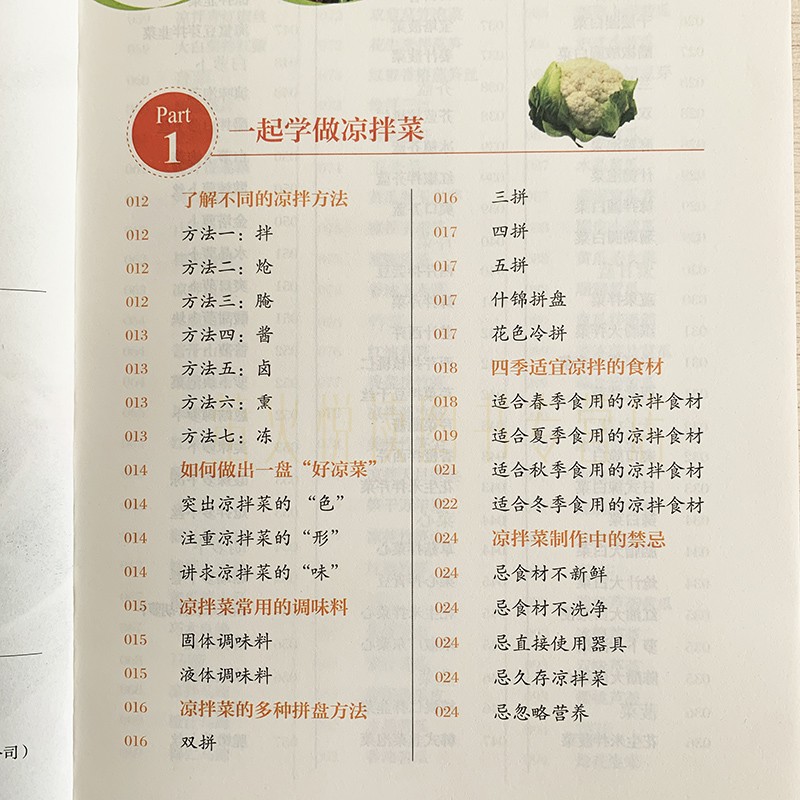 Part
1
一起学做凉拌菜
012 了解不同的凉拌方法
012 方法一：拌
012 方法二：炝
012 方法三：腌
013 方法四：酱
013 方法五：卤
013 方法六：熏
013 方法七：冻
014 如何做出一盘“好凉菜”
014 突出凉拌菜的“色”
014 注重凉拌菜的“形”
014 讲求凉拌菜的“味”
015 凉拌菜常用的调味料
015 固体调味料
015 液体调味料
016 凉拌菜的多种拼盘方法
016 双拼
016 三拼
017 四拼
017 五拼
017 什锦拼盘
017 花色冷拼
018 四季适宜凉拌的食材
018 适合春季食用的凉拌食材
019 适合夏季食用的凉拌食材
021 适合秋季食用的凉拌食材
022 适合冬季食用的凉拌食材
024 凉拌菜制作中的禁忌
024 忌食材不新鲜
024 忌食材不洗净
024 忌直接使用器具
024 忌久存凉拌菜
024 忌忽略营养
司）